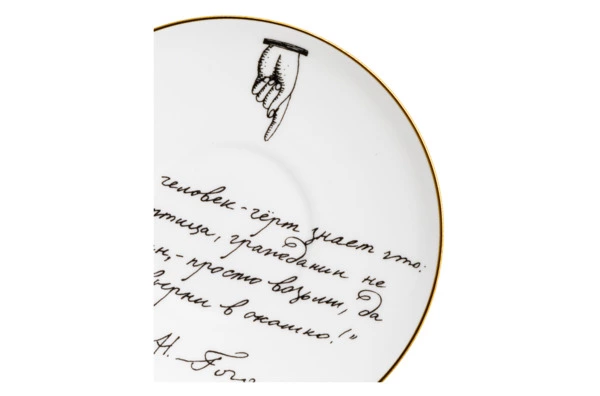 человек - чёрт знает что:
птица, гражданин не
ин, - просто возьми, да
вырни в окошко!"
Н. Гого